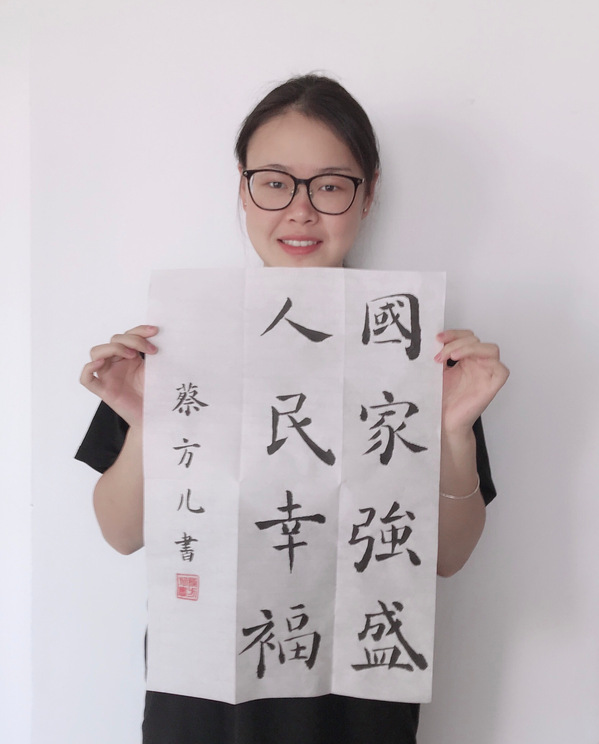 國家強盛
人民幸福
蔡方儿書